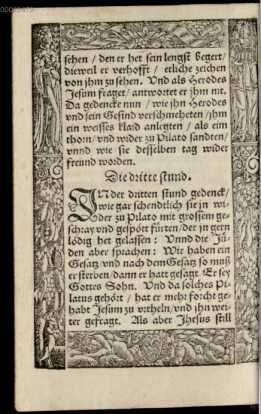 sehen / den er het sein lengst Begert /
dieweil er verhofft / etliche zeichen
von jhm zu sehen. Vnd als Herodes
Jesum fraget / antwortet er jhm nit.
Da gedencke nun / wie jhn Herodes
vnd sein Gesind verschmeheten / jhm
ein weisses klaid anlegten / als eim
thorn / vnd wider zu Pilato sandten /
vnnd wie sie desselben tag wider
freund worden.
Die dritte stund.
IN der dritten stund gedenck /
wie gar schendtlich sie jn wi-
der zu Pilato mit grossem ge-
schray vnd gespöt fürten / der jn gern
lödig het gelassen : Vnnd die Jü-
den aber sprachen : Wir haben ein
Gesatz vnd nach dem Gesatz so muß
er sterben / dann er hatt gesagt / Er sey
Gottes Sohn. Vnd da solches Pi-
latus gehört / hat er mehr forcht ge-
habt Jesum zu vrtheln / vnd jhn wei-
ter gefragt. Als aber Jhesus still